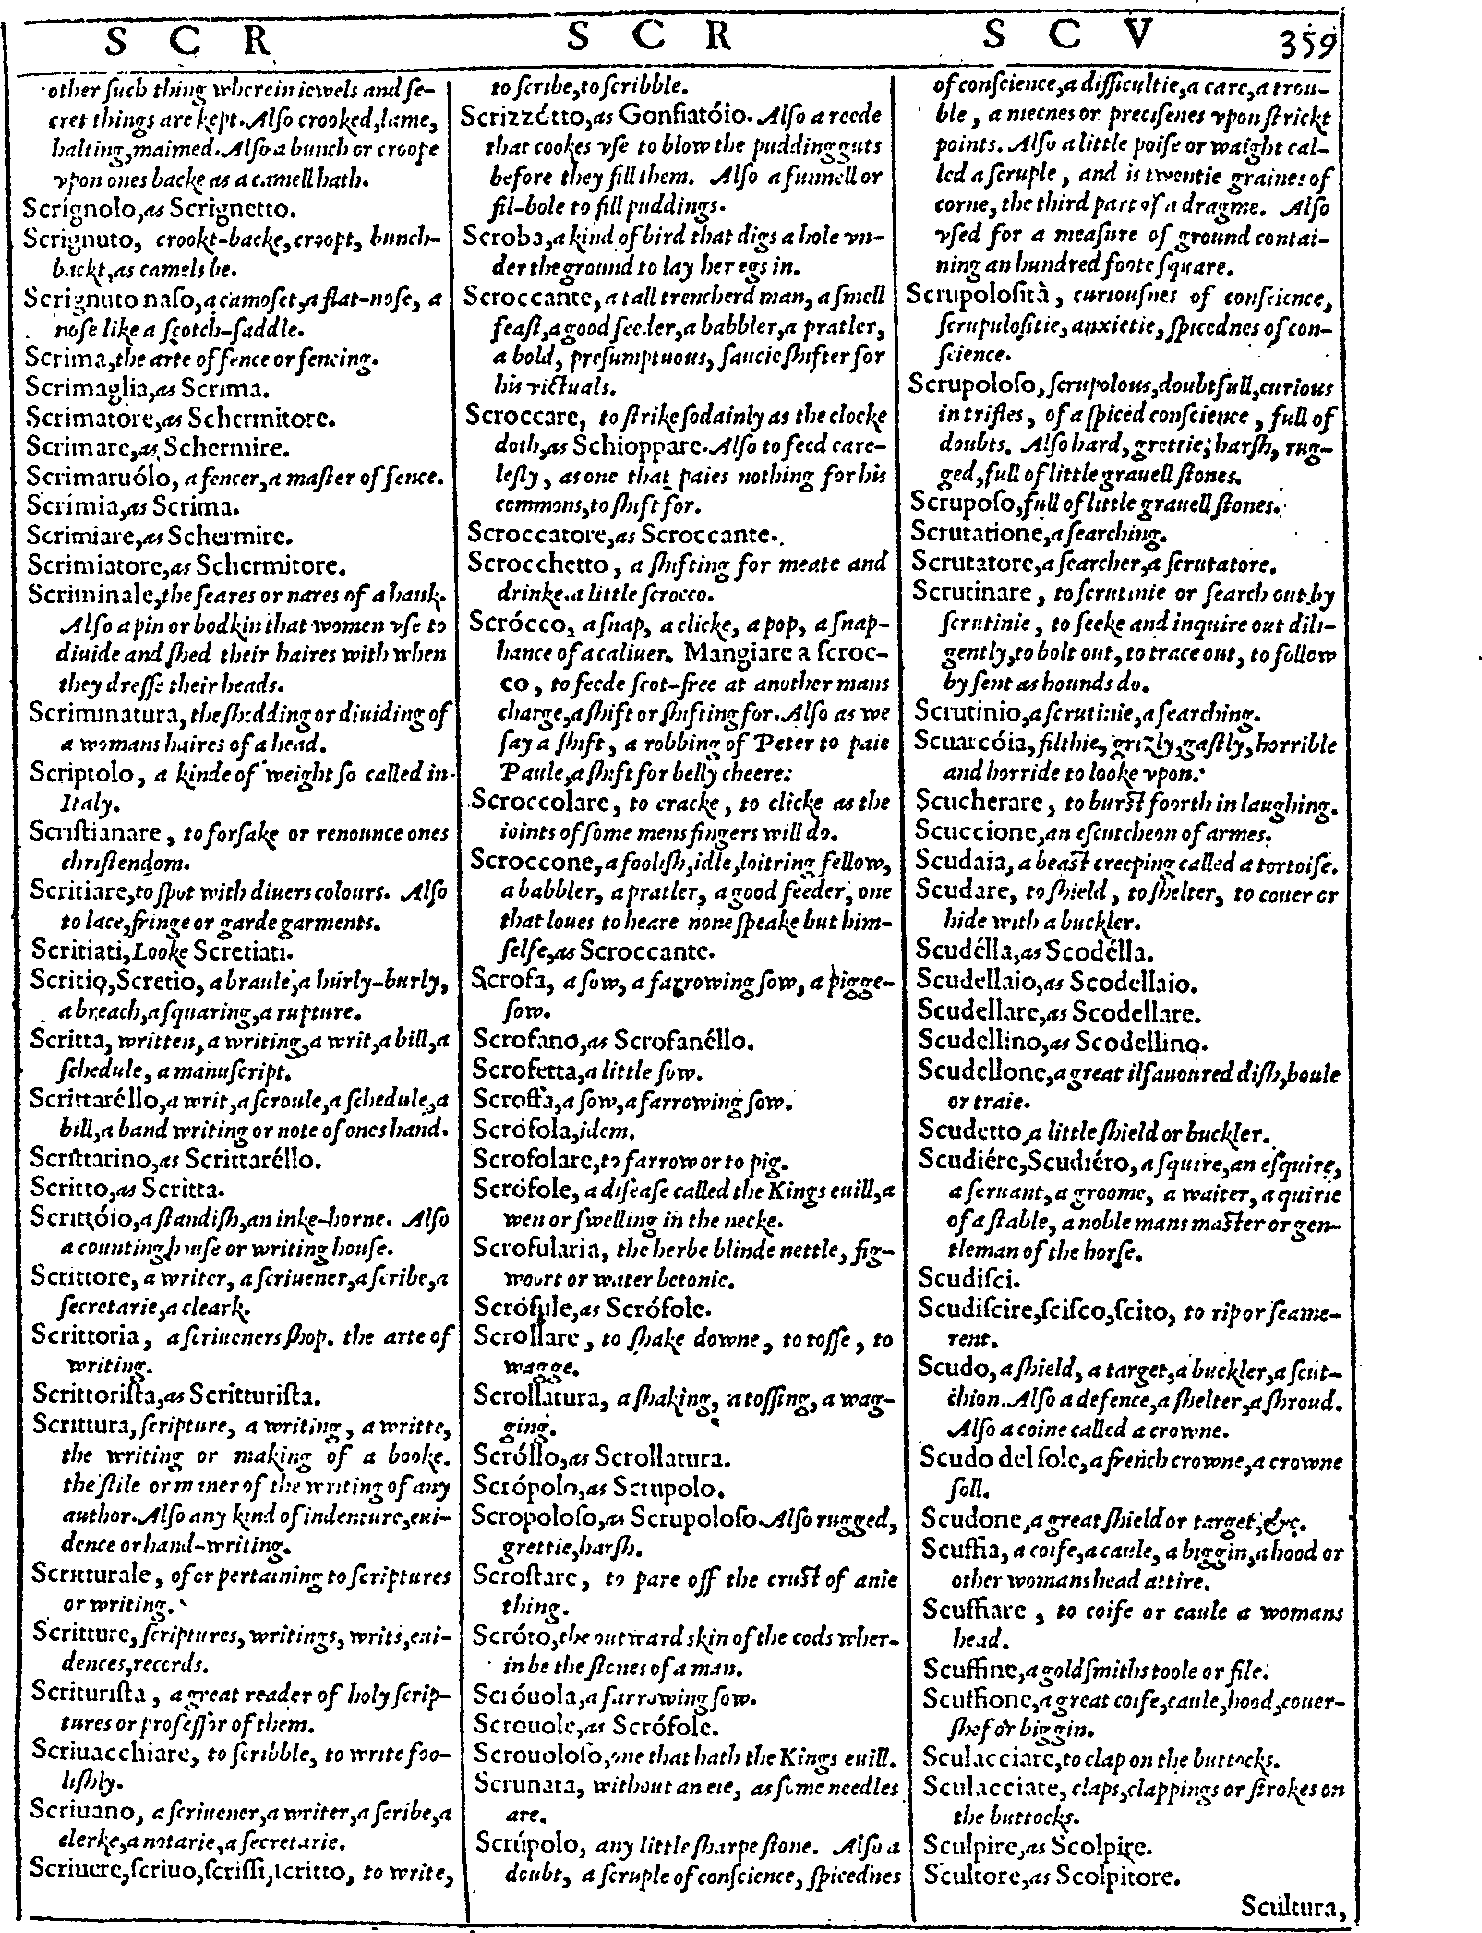 S C R
S C R
S C V
359
other ſuch thing wherein iewels and ſe-
cret things are kept. Alſo crooked, lame,
halting, maimed. Also a bunch or croope
vpon ones backe as a camell hath.
Scrígnolo, as Scrignetto.
Scrignuto, crookt-backe, croopt, bunch-
backt, as camels be.
Scrignuto naſo, a camoſet, a flat-noſe, a
noſe like a ſcotch-ſaddle.
Scrima, the arte of fence or fencing.
Scrimaglia, as Scrima.
Scrimatóre, as Schermitore.
Scrimare, as Schermire.
Scrimaruólo, a fencer, a maſter of fence.
Scrímia, as Scrima.
Scrimiare, as Schermire.
Scrimiatore, as Schermitore.
Scriminale, the ſeares or nares of a hauk.
Alſo a pin or bodkin that women vſe to
diuide and ſhed their haires with when
they dreſſe their heads.
Scriminatura, the ſhedding or diuiding of
a womans haires of a head.
Scriptolo, a kinde of weight ſo called in
Italy.
Scriſtianare, to forſake or renounce ones
chriſtendom.
Scritiare, to ſpot with diuers colours. Alſo
to lace, fringe or garde garments.
Scritiati, Looke Scretiati.
Scritio, Scretio, a braule, a hurly-burly,
a breach, a ſquaring, a rupture.
Scritta, written, a writing, a writ, a bill, a
ſchedule, a manuſcript.
Scrittaréllo, a writ, a ſcroule, a ſchedule, a
bill, a band writing or note of ones hand.
Scrittarino, as Scrittaréllo.
Scritto, as Scritta.
Scrittóio, a ſtandiſh, an inke-horne. Alſo
a counting houſe or writing houſe.
Scrittore, a writer, a ſcriuener, a ſcribe, a
ſecretarie, a cleark.
Scrittoria, a ſcriueners ſhop. the arte of
writing.
Scrittoriſta, as Scritturiſta.
Scrittura, ſcripture, a writing, a writte,
the writing or making of a booke.
the ſtile or maner of the writing of any
author. Alſo any kind of indenture, eui-
dence or hand-writing.
Scritturale, of or pertaining to ſcriptures
or writing.
Scritture, ſcriptures, writings, writs, eui-
dences, records.
Scrituriſta, a great reader of holy ſcrip-
tures or profeſſor of them.
Scriuacchiare, to ſcribble, to write foo-
liſhly.
Scriuano, a ſcriuener, a writer, a ſcribe, a
clerke, a notarie, a ſecretarie.
Scriuere, ſcriuo, ſcriſſi, ſcritto, to write,
to ſcribe, to ſcribble.
Scrizzétto, as Gonfiatóio. Alſo a reede
that cookes vſe to blow the pudding guts
before they fill them. Alſo a funnell or
fil-bole to fill puddings.
Scroba, a kind of bird that digs a hole vn-
der the ground to lay her egs in.
Scroccante, a tall trencherd man, a ſmell
feaſt, a good feeder, a babbler, a pratler,
a bold, preſumptuous, ſaucie ſhifter for
his victuals.
Scroccare, to ſtrike ſodainly as the clocke
doth, as Schioppare. Alſo to feed care-
leſly, as one that paies nothing for his
commons, to ſhift for.
Scroccatore, as Scroccante.
Scrocchetto, a ſhifting for meate and
drinke. a little ſcrocco.
Scrócco, a ſnap, a clicke, a pop, a ſnap-
hance of a caliuer. Mangiare a ſcroc-
co, to feede ſcot-free at another mans
charge, a ſhift or ſhifting for. Alſo as we
ſay a ſhift, a robbing of Peter to paie
Paule, a ſhift for belly cheere.
Scroccolare, to cracke, to clicke as the
ioints of ſome mens fingers will do.
Scroccone, a fooliſh, idle, loitring fellow,
a babbler, a pratler, a good feeder, one
that loues to heare none ſpeake but him-
ſelfe, as Scroccante.
Scrofa, a ſow, a farrowing ſow, a pigge-
ſow.
Scrofano, as Scrofanéllo.
Scrofetta, a little ſow.
Scroffa, a ſow, a farrowing ſow.
Scrófola, idem.
Scrofolare, to farrow or to pig.
Scrófole, a diſeaſe called the Kings euill, a
wen or ſwelling in the necke.
Scrofularia, the herbe blinde nettle, fig-
woort or water betonie.
Scrófule, as Scrófole.
Scrollare, to ſhake downe, to toſſe, to
wagge.
Scrollatura, a ſhaking, a toſſing, a wag-
ging.
Scróllo, as Scrollatura.
Scrópolo, as Scrupolo.
Scropoloſo, as Scrupoloſo. Alſo rugged,
grettie, harſh.
Scroſtare, to pare off the cruſt of anie
thing.
Scróto, the outward skin of the cods wher-
in be the ſtones of a man.
Scróuola, a farrowing ſow.
Scrouole, as Scrófole.
Scrouoloſo, one that hath the Kings euill.
Scrunata, without an eie, as ſome needles
are.
Scrúpolo, any little ſharpe ſtone. Alſo a
doubt, a ſcruple of conſcience, ſpicednes
of conſcience, a difficultie, a care, a trou-
ble, a niecnes or preciſenes vpon ſtrickt
points. Alſo a little poiſe or waight cal-
led a ſcruple, and is twentie graines of
corne, the third part of a dragme. Alſo
vſed for a meaſure of ground contai-
ning an hundred foote ſquare.
Scrupoloſità, curiouſnes of conſcience,
ſcrupuloſitie, anxietie, ſpicednes of con-
ſcience.
Scrupoloſo, ſcrupolous, doubtfull, curious
in trifles, of a ſpiced conſcience, full of
doubts. Alſo hard, grettie, harſh, rug-
ged, full of little grauell ſtones.
Scrupoſo, full of little grauell ſtones.
Scrutatione, a ſearching.
Scrutatore, a ſearcher, a ſcrutatore.
Scrutinare, to ſcrutinie or ſearch out by
ſcrutinie, to ſeeke and inquire out dili-
gently, to bolt out, to trace out, to follow
by ſent as hounds do.
Scrutinio, a ſcrutinie, a ſearching.
Scuarcóia, filthie, grizly, gaſtly, horrible
and horride to looke vpon.
Scucherare, to burſt foorth in laughing.
Scuccione, an eſcutcheon of armes.
Scudaia, a beaſt creeping called a tortoiſe.
Scudare, to ſhield, to ſhelter, to couer or
hide with a buckler.
Scudélla, as Scodélla.
Scudellaio, as Scodellaio.
Scudellare, as Scodellare.
Scudellino, as Scodellino.
Scudellone, a great ilfauoured diſh, boule
or traie.
Scudetto, a little ſhield or buckler.
Scudiére, Scudiéro, a ſquire, an eſquire,
a ſeruant, a groome, a waiter, a quirie
of a ſtable, a noble mans maſter or gen-
tleman of the horſe.
Scudiſci.
Scudiſcire, ſciſco, ſcito, to rip or ſeame-
rent.
Scudo, a ſhield, a target, a buckler, a ſcut-
chion. Alſo a defence, a ſhelter, a ſhroud.
Alſo a coine called a crowne.
Scudo del ſole, a french crowne, a crowne
ſoll.
Scudone, a great ſhield or target, &c.
Scuffia, a coife, a caule, a biggin, a hood or
other womans head attire.
Scuffiare, to coife or caule a womans
head.
Scuffine, a goldſmiths toole or file.
Scuffione, a great coife, caule, hood, couer-
chef or biggin.
Sculacciare, to clap on the buttocks.
Sculacciate, claps, clappings or ſtrokes on
the buttocks.
Sculpire, as Scolpire.
Scultore, as Scolpitore.
Scultura,